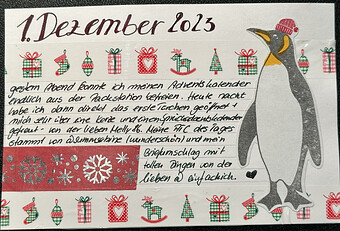 1. Dezember 2023
gestern Abend konnte ich meinen Adventskalender
endlich aus der Packstation befreien. Heute Nacht
habe ich dann direkt das erste Türchen geöffnet +
mich sehr über eine Karte und einen
gefreut - von der lieben Molly. Meine ATC des Tages
stammt von (wunderschön) und mein
Briefumschlag mit
tollen Dingen von der
lieben